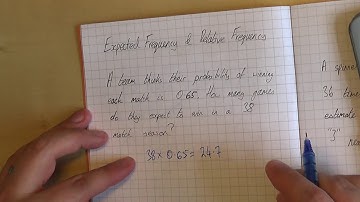 Expected Frequency & Relative Frequency
A team thinks their probability of winning
each match is 0.65. How many games
do they expect to win in a 38
match season?
38 × 0.65 = 24.7
A spinn
36 time
estimate
"3"